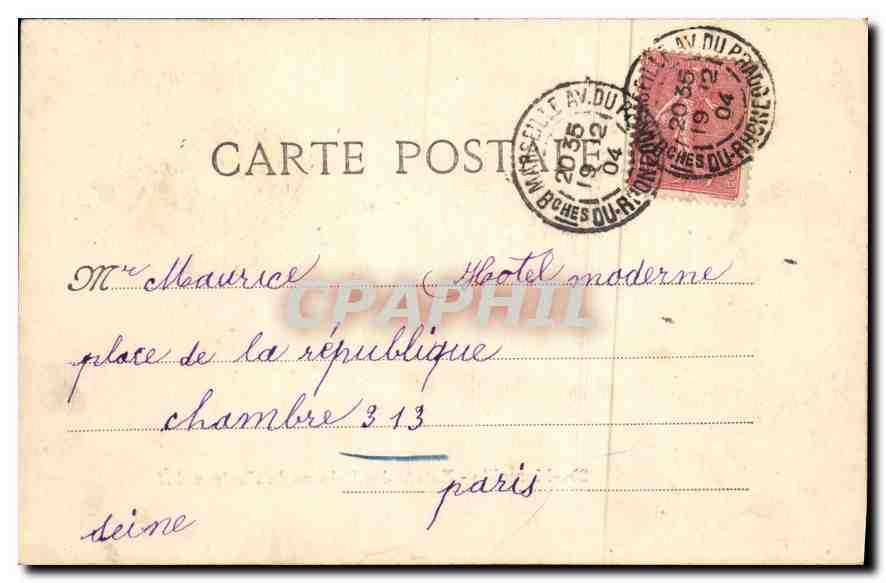 CARTE POSTALE
MARSEILLE AV. DU PRADO
20 35
19 12
04
BCHES DU-RHONE
MARSEILLE AV. DU PRADO
20 35
19 12
04
BCHES DU-RHONE
Mr Maurice Hotel moderne
CPAPHIL
place de la république
chambre 313
paris
seine